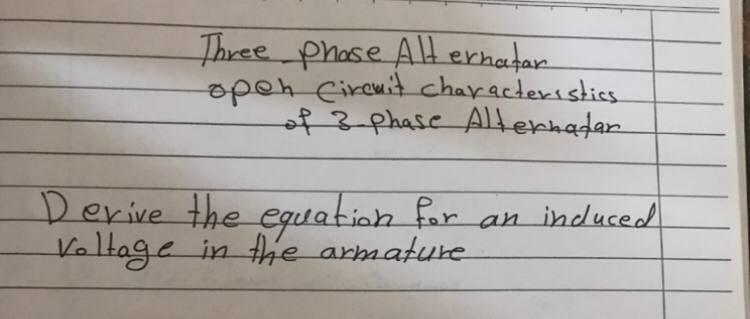 Three phase Alternatar
open Circuit characteristics
of 3-phase Alternatar
Derive the equation for an induced
Voltage in the armature